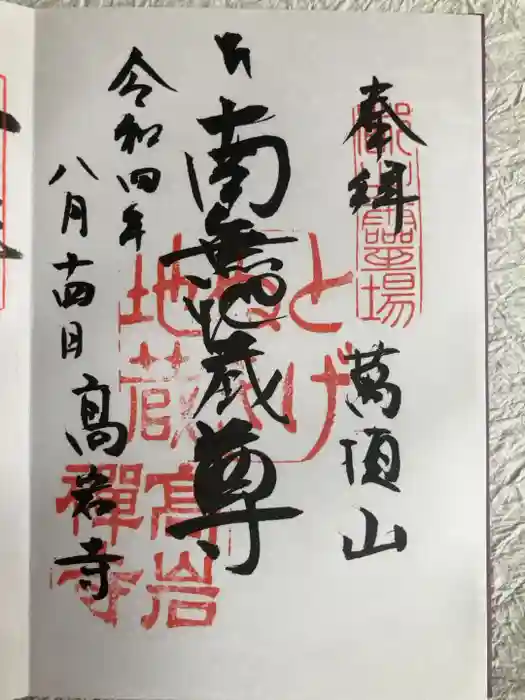 奉拝
萬頂山
南無地蔵尊
令和四年
八月十四日
高岩寺
とげぬき
地蔵
高岩
禅寺